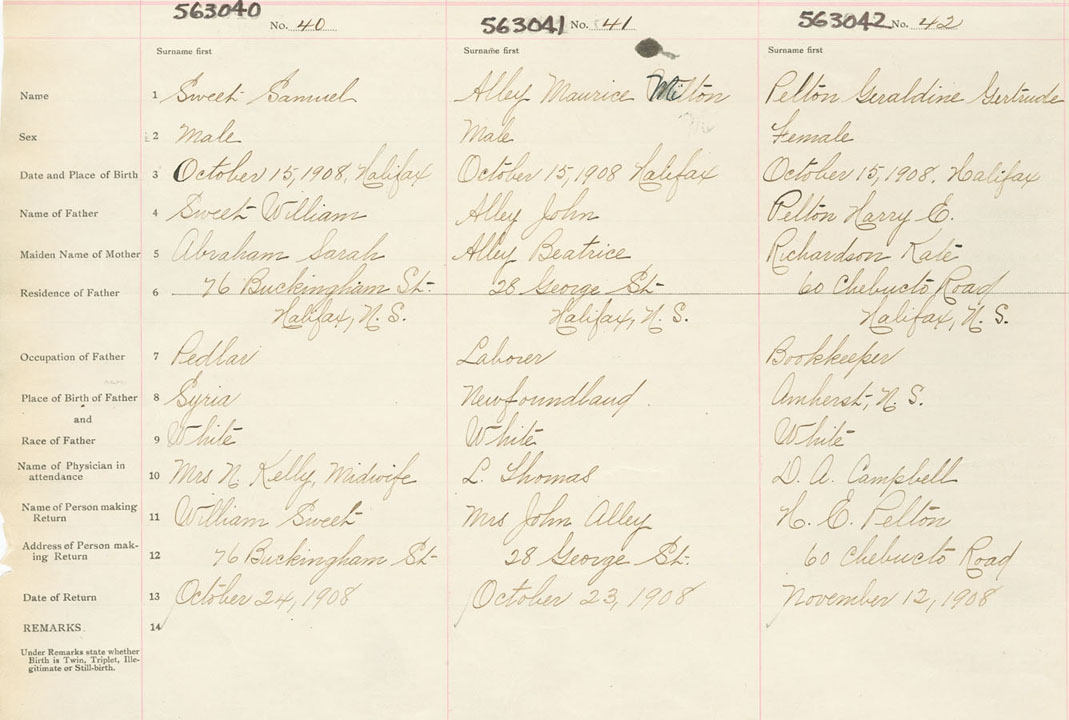 563040 No. 40 563041 No. 41 563042 No. 42
Surname first Surname first Surname first
Name 1 Sweet Samuel Alley Maurice Milton Pelton Geraldine Gertrude
Sex 2 Male Male Female
Date and Place of Birth 3 October 15, 1908, Halifax October 15, 1908 Halifax October 15, 1908, Halifax
Name of Father 4 Sweet William Alley John Pelton Harry E.
Maiden Name of Mother 5 Abraham Sarah Alley Beatrice Richardson Kate
Residence of Father 6 76 Buckingham St. 28 George St. 60 Chebucto Road
Halifax, N.S. Halifax, N.S. Halifax, N.S.
Occupation of Father 7 Pedlar Laborer Bookkeeper
Place of Birth of Father 8 Syria Newfoundland Amherst, N.S.
and
Race of Father 9 White White White
Name of Physician in
attendance 10 Mrs N. Kelly, Midwife L. Thomas D. A. Campbell
Name of Person making
Return 11 William Sweet Mrs John Alley H. E. Pelton
Address of Person mak-
ing Return 12 76 Buckingham St. 28 George St. 60 Chebucto Road
Date of Return 13 October 24, 1908 October 23, 1908 November 12, 1908
REMARKS. 14
Under Remarks state whether
Birth is Twin, Triplet, Ille-
gitimate or Still-birth.